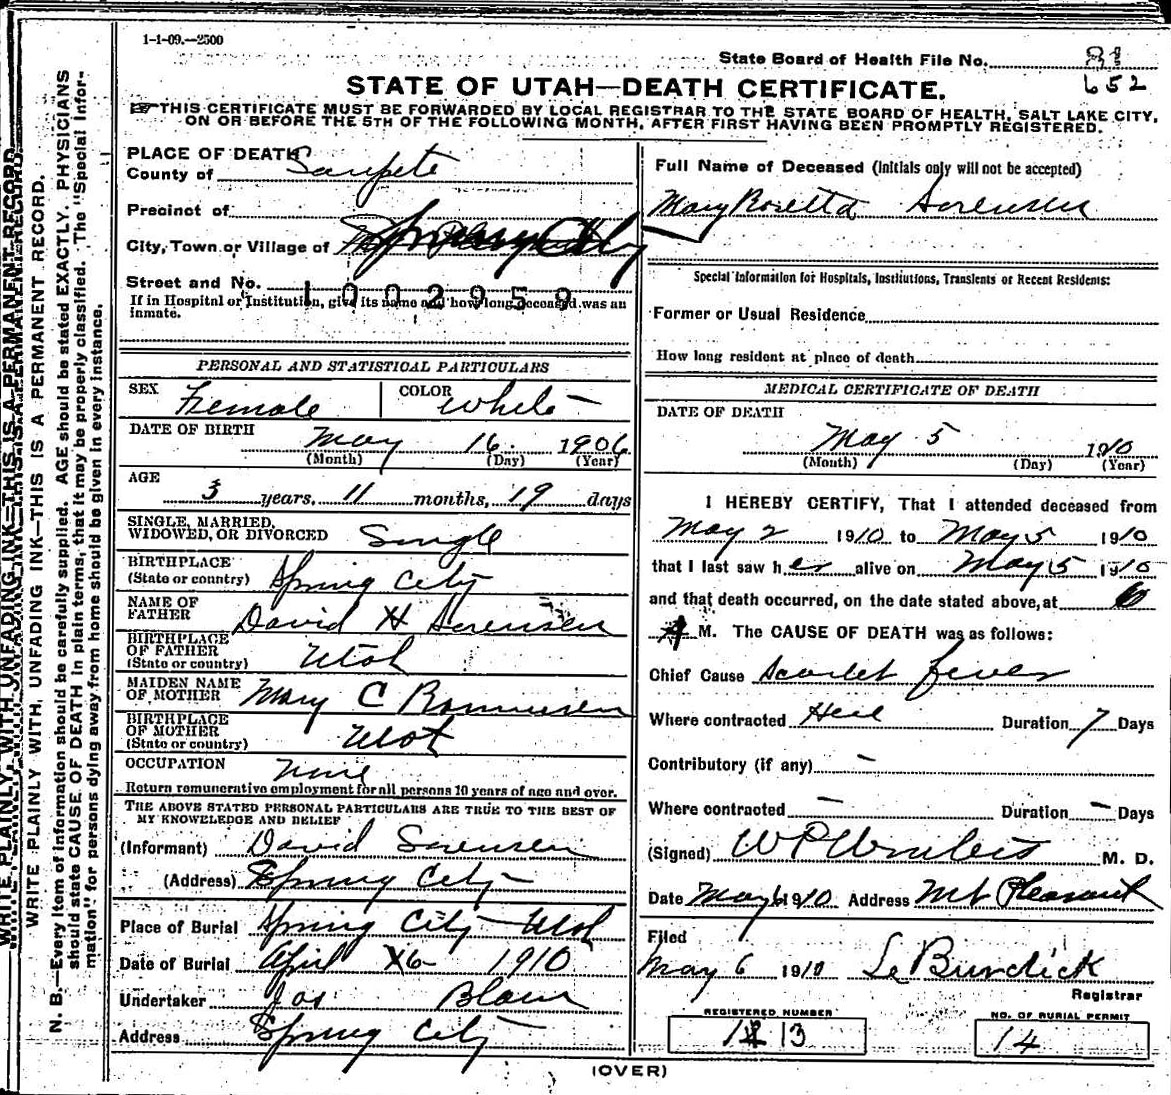 1-1-09.—2500
State Board of Health File No. 81
652
STATE OF UTAH—DEATH CERTIFICATE.
THIS CERTIFICATE MUST BE FORWARDED BY LOCAL REGISTRAR TO THE STATE BOARD OF HEALTH, SALT LAKE CITY,
ON OR BEFORE THE 5TH OF THE FOLLOWING MONTH, AFTER FIRST HAVING BEEN PROMPTLY REGISTERED.
WRITE PLAINLY, WITH UNFADING INK—THIS IS A PERMANENT RECORD.
WRITE PLAINLY WITH, UNFADING INK—THIS IS A PERMANENT RECORD.
N. B.—Every item of information should be carefully supplied. AGE should be stated EXACTLY. PHYSICIANS
should state CAUSE OF DEATH in plain terms, that it may be properly classified. The "Special Infor-
mation" for persons dying away from home should be given in every instance.
PLACE OF DEATH
County of Sanpete
Precinct of
City, Town or Village of Spring City
Street and No.
1002959
If in Hospital or Institution, give its name and how long deceased was an
inmate.
PERSONAL AND STATISTICAL PARTICULARS
SEX Female COLOR White
DATE OF BIRTH May 16 1906
(Month) (Day) (Year)
AGE
3 years, 11 months, 19 days
SINGLE, MARRIED,
WIDOWED, OR DIVORCED Single
BIRTHPLACE
(State or country) Spring City
NAME OF
FATHER David H Sorensen
BIRTHPLACE
OF FATHER
(State or country) Utah
MAIDEN NAME
OF MOTHER Mary C Rasmusen
BIRTHPLACE
OF MOTHER
(State or country) Utah
OCCUPATION None
Return remunerative employment for all persons 10 years of age and over.
THE ABOVE STATED PERSONAL PARTICULARS ARE TRUE TO THE BEST OF
MY KNOWELEDGE AND BELIEF
(Informant) David Sorensen
(Address) Spring City
Place of Burial Spring City Utah
Date of Burial April 6 1910
Undertaker Jos Blain
Address Spring City
Full Name of Deceased (Initials only will not be accepted)
Mary Rosetta Sorensen
Special Information for Hospitals, Institutions, Transients or Recent Residents:
Former or Usual Residence
How long resident at place of death
MEDICAL CERTIFICATE OF DEATH
DATE OF DEATH
May 5 1910
(Month) (Day) (Year)
I HEREBY CERTIFY, That I attended deceased from
May 2 1910 to May 5 1910
that I last saw her alive on May 5 1910
and that death occurred, on the date stated above, at 6
A M. The CAUSE OF DEATH was as follows:
Chief Cause Scarlet fever
Where contracted Here Duration 7 Days
Contributory (if any) —
Where contracted — Duration — Days
(Signed) W P M. D.
Date May 6 1910 Address Mt Pleasant
Filed
May 6 1910 Burdick
Registrar
REGISTERED NUMBER
13
NO. OF BURIAL PERMIT
14
(OVER)